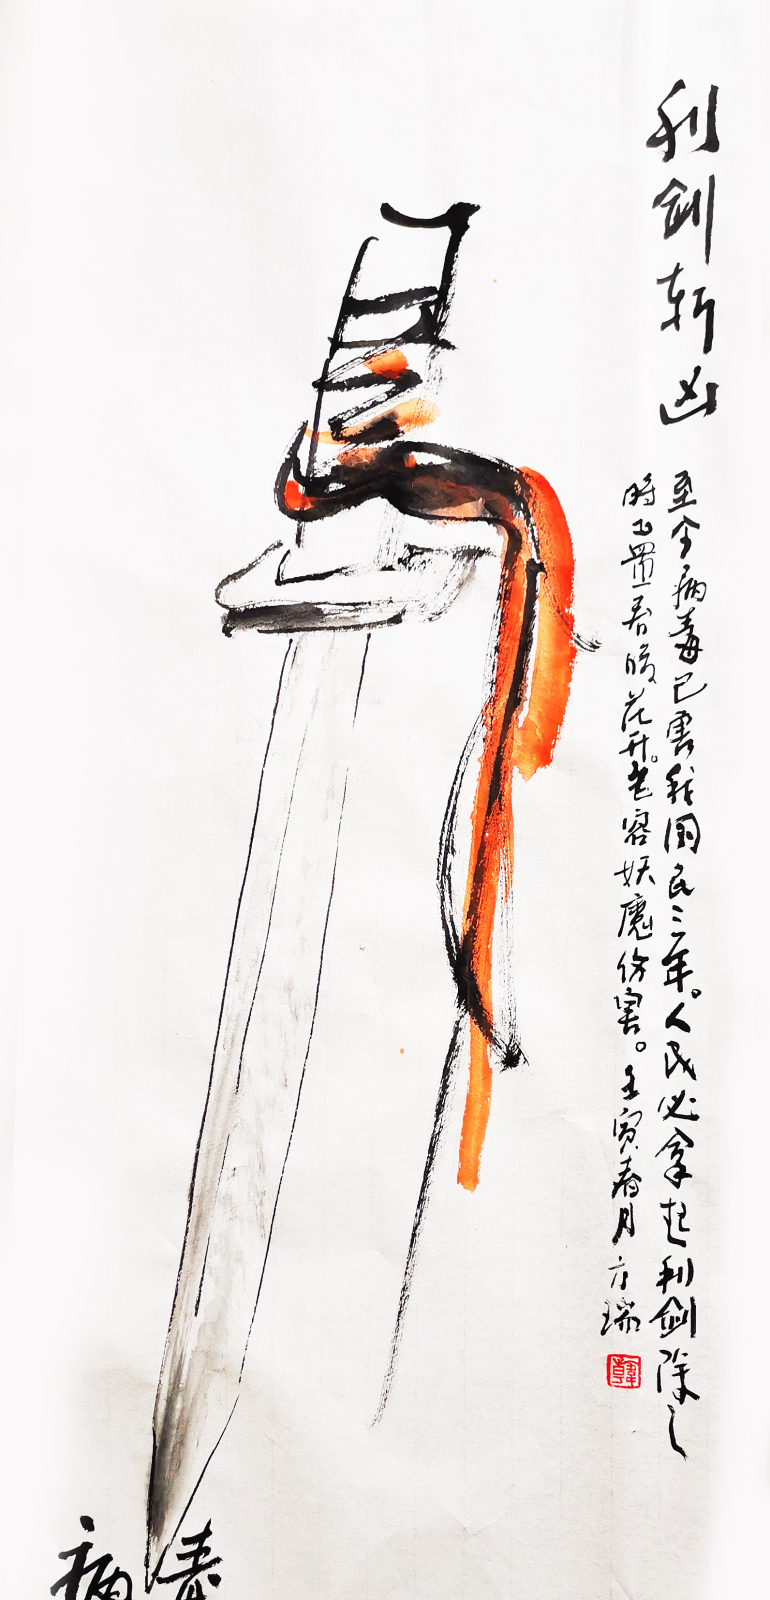 利剑斩凶
至今病毒已害我国民三年。人民必拿起利剑除之
时正置春暖花开。老容妖魔伤害。壬寅春月方瑞
病毒